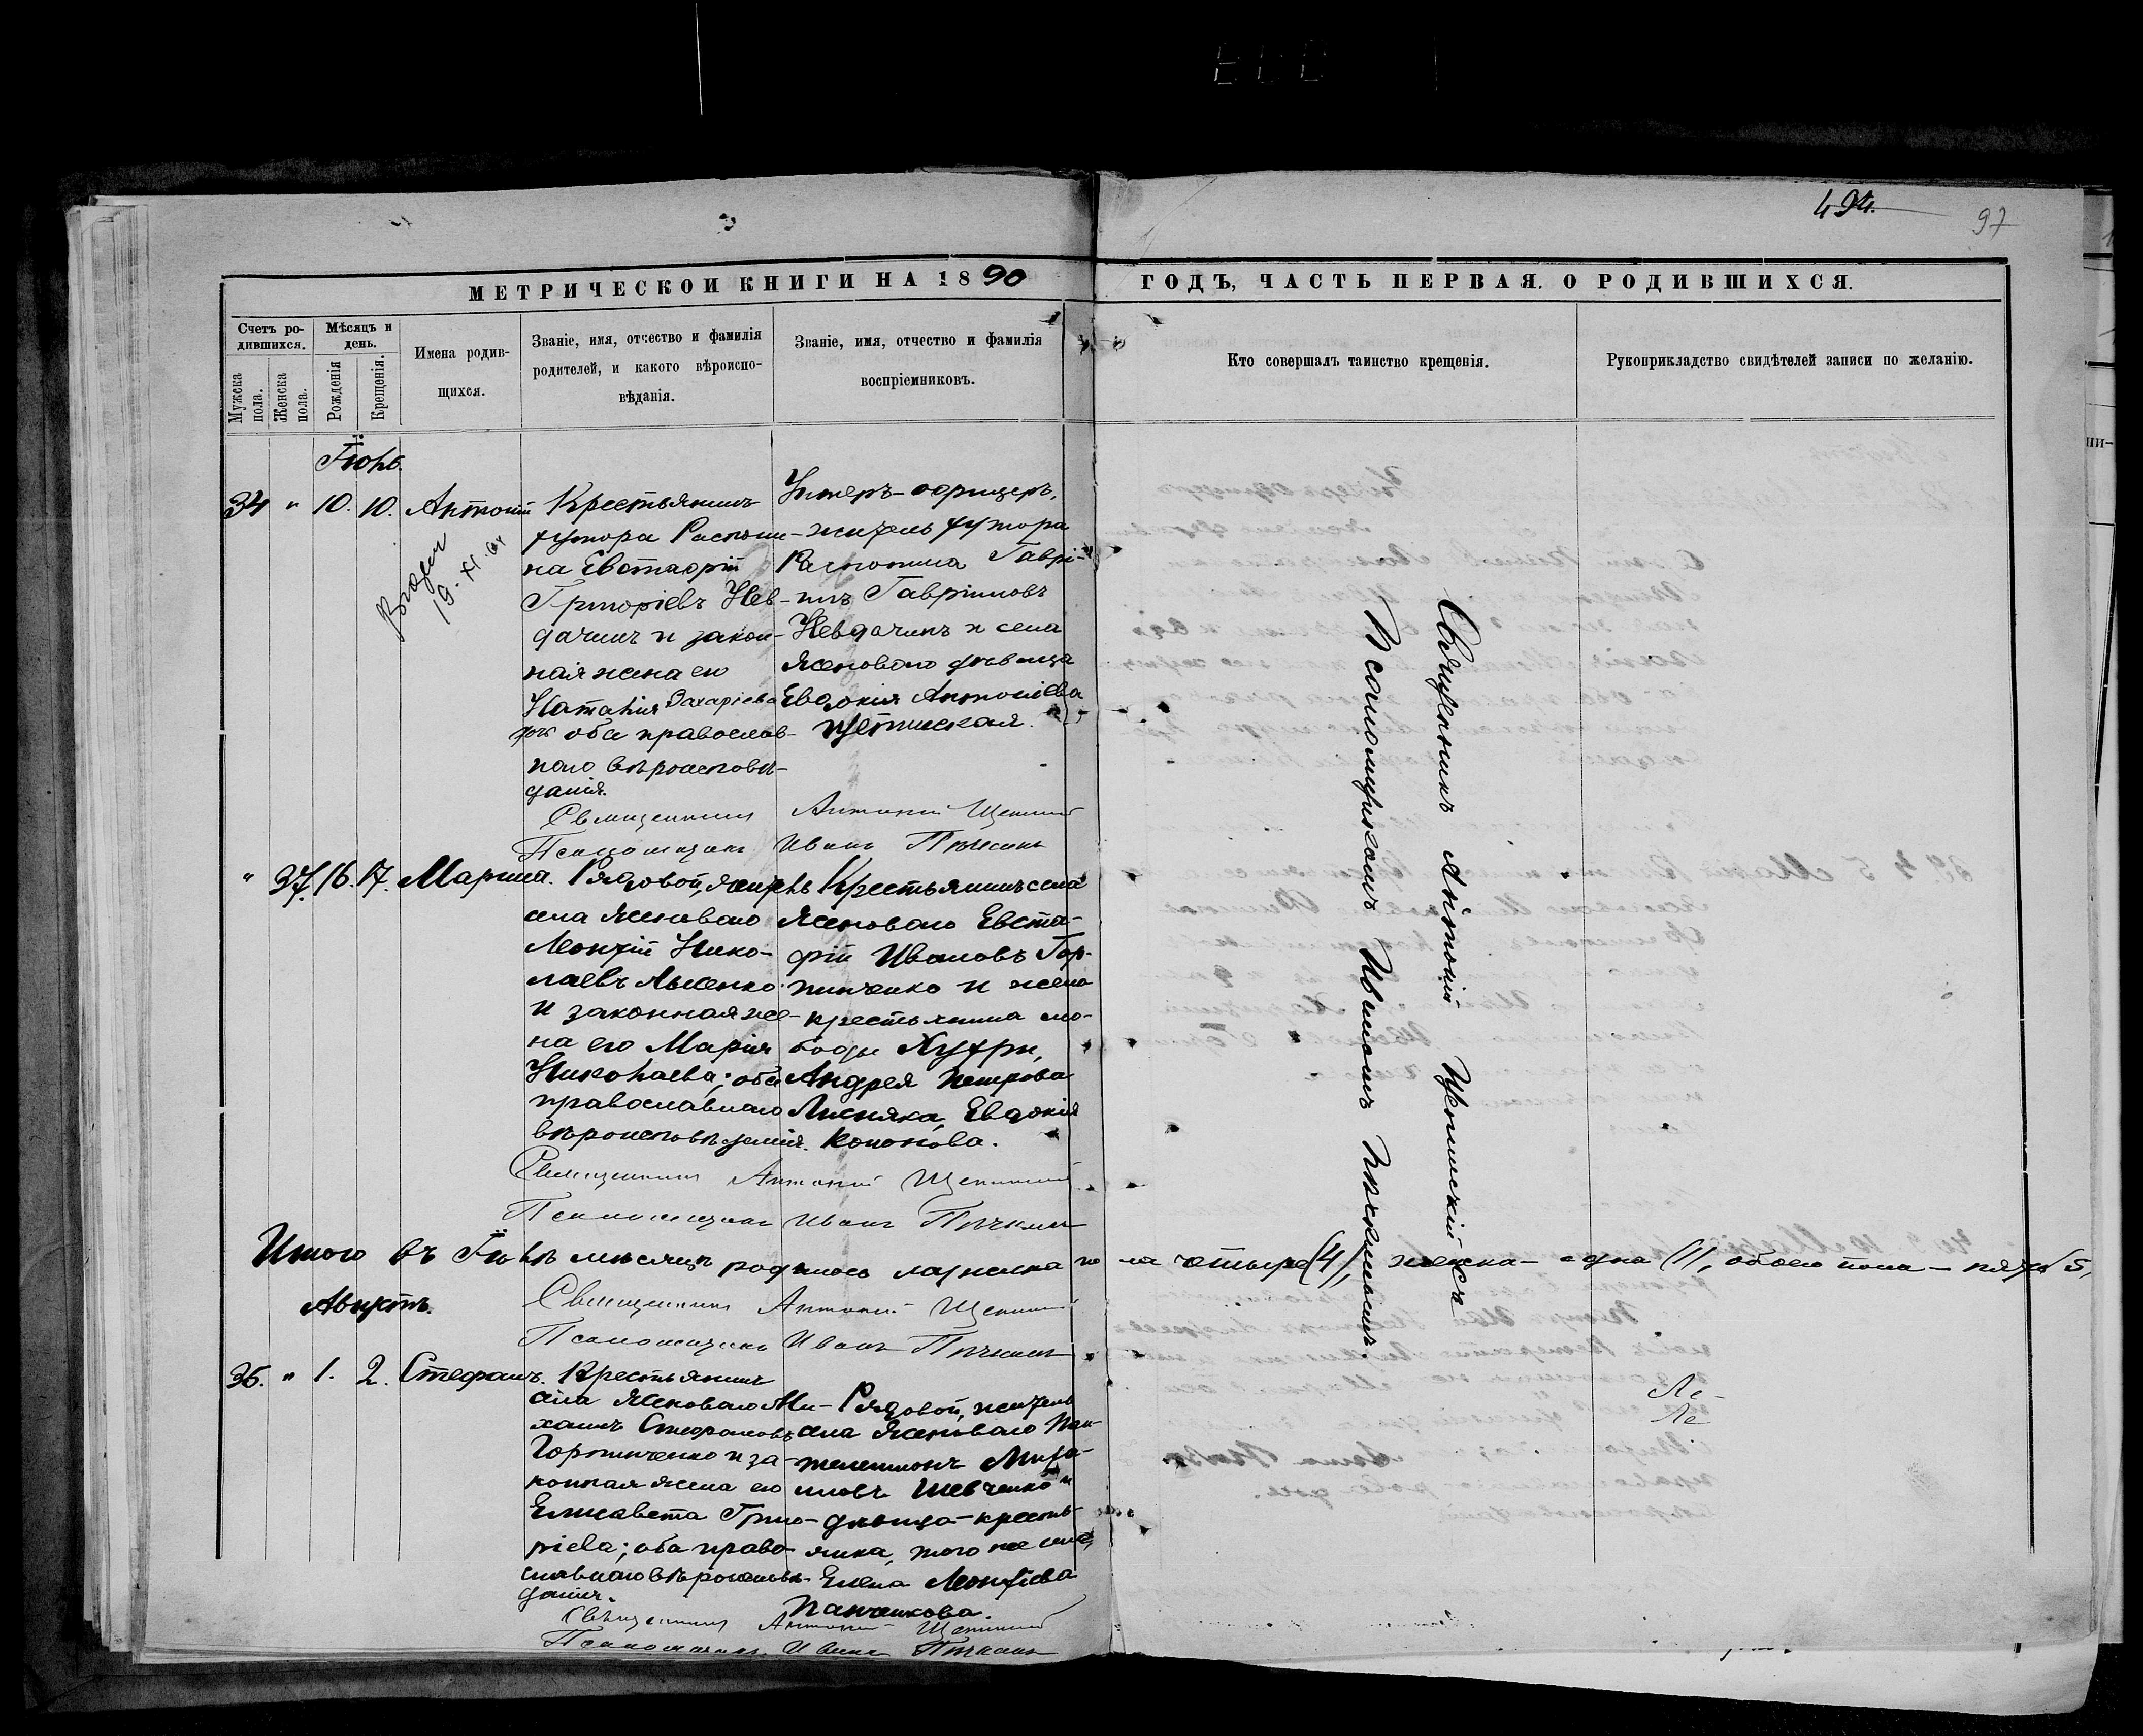 494.
97
МЕТРИЧЕСКОЙ КНИГИ НА 1890
ГОДЪ, ЧАСТЬ ПЕРВАЯ. О РОДИВШИХСЯ.
Счетъ ро-
дившихся.
Мужеска
пола.
Женска
пола.
Мѣсяцъ и
день.
Рожденія
Крещенія.
Имена родив-
шихся.
Званіе, имя, отчество и фамилія
родителей, и какого вѣроиспо-
вѣданія.
Званіе, имя, отчество и фамилія
воспріемниковъ.
Кто совершалъ таинство крещенія.
Рукоприкладство свидѣтелей записи по желанію.
34 " 10. 10. Антоній
19. XI.
Крестьянинъ
хутора
на Евстафій
Григоріевъ Нев-
дачинъ и закон-
ная жена его
Наталія Захаріева
оба православ-
наго вѣроисповѣ-
данія.
Унтеръ-офицеръ,
житель хутора
Гаврі-
илъ Гавріиловъ
Невдачинъ и села
Ясеноваго дѣвица
Евдокія Антоніева
Щетинская.
Священникъ Антоній
Псаломщикъ Иванъ
" 37. 16. 17. Марина.
Рядовой, житель
села Ясеноваго
Леонтій Нико-
лаевъ Лысенко
и законная же-
на его Марія
Николаева; оба
православнаго
вѣроисповѣданія.
Крестьянинъ села
Ясеноваго Евста-
фій Ивановъ Гор-
пинченко и жена
крестьянина сло-
боды
Андрея Петрова
Лисняка, Евдокія
Кононова.
Священникъ Антоній
Псаломщикъ Иванъ
Итого въ мѣсяцѣ родилось мужеска по-
ла четыре (4), женска - одна (1), обоего пола - пять 5,
Священникъ Антоній
Псаломщикъ Иванъ
Августъ.
35. " 1. 2. Стефанъ.
Крестьянинъ
села Ясеноваго Ми-
хаилъ Стефановъ
Горпинченко и за-
конная жена его
Елисавета Григо-
ріева; оба право-
славнаго вѣроисповѣ-
данія.
Рядовой, житель
села Ясеноваго Пан-
телеимонъ
Шевченко и
дѣвица - кресть-
янка, того же села,
Елена Леонтіева
Панченкова.
Священникъ Антоній
Псаломщикъ Иванъ
Священникъ Антоній
Псаломщикомъ Иваномъ